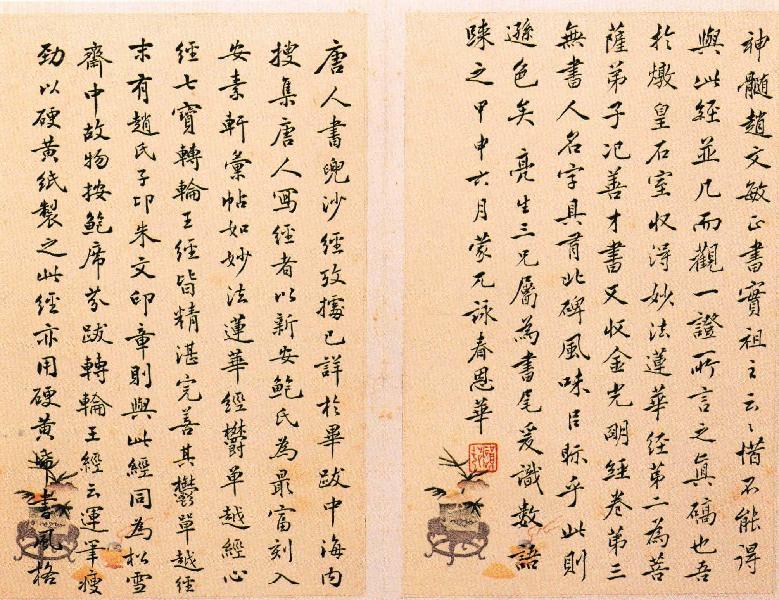 唐人書兜沙經攷據已詳於畢跋中海内
搜集唐人寫經者以新安鮑氏為最富刻入
安素軒彙帖如妙法蓮華經欝單越經心
經七寶轉輪王經皆精湛完善其欝單越經
末有趙氏子印朱文印章則與此經同為松雪
齋中故物按鮑席芬跋轉輪王經云運筆瘦
勁以硬黄紙製之此經亦用硬黄帋書風格
神髓趙文敏正書實祖之云云惜不能得
與此經並几而觀一證所言之真碻也吾
於燉皇石室收得妙法蓮華经第二為菩
薩弟子氾善才書又收金光明經卷第三
無書人名字具有此碑風味眎乎此則
遜色矣 亮生三兄屬為書尾爰識數語
之甲申六月蒙兀詠春恩華